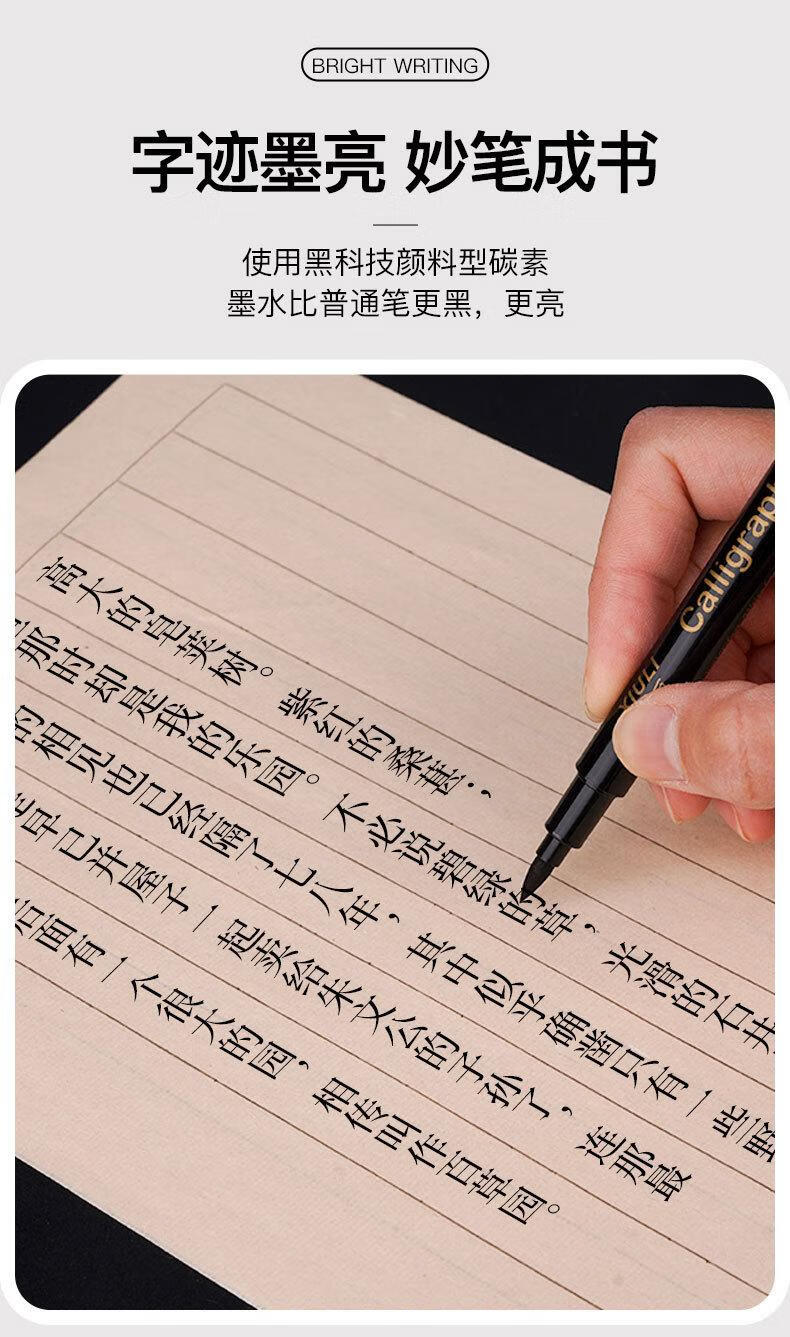 BRIGHT WRITING
字迹墨亮 妙笔成书
使用黑科技颜料型碳素
墨水比普通笔更黑，更亮
后面有一个很大的园，相传叫作百草园。
早已并屋子一起卖给朱文公的子孙了，连那最
的相见也已经隔了七八年，其中似乎确凿只有一些野
那时却是我的乐园。不必说碧绿的草，光滑的石井
高大的皂荚树。紫红的桑葚；
Calligraph